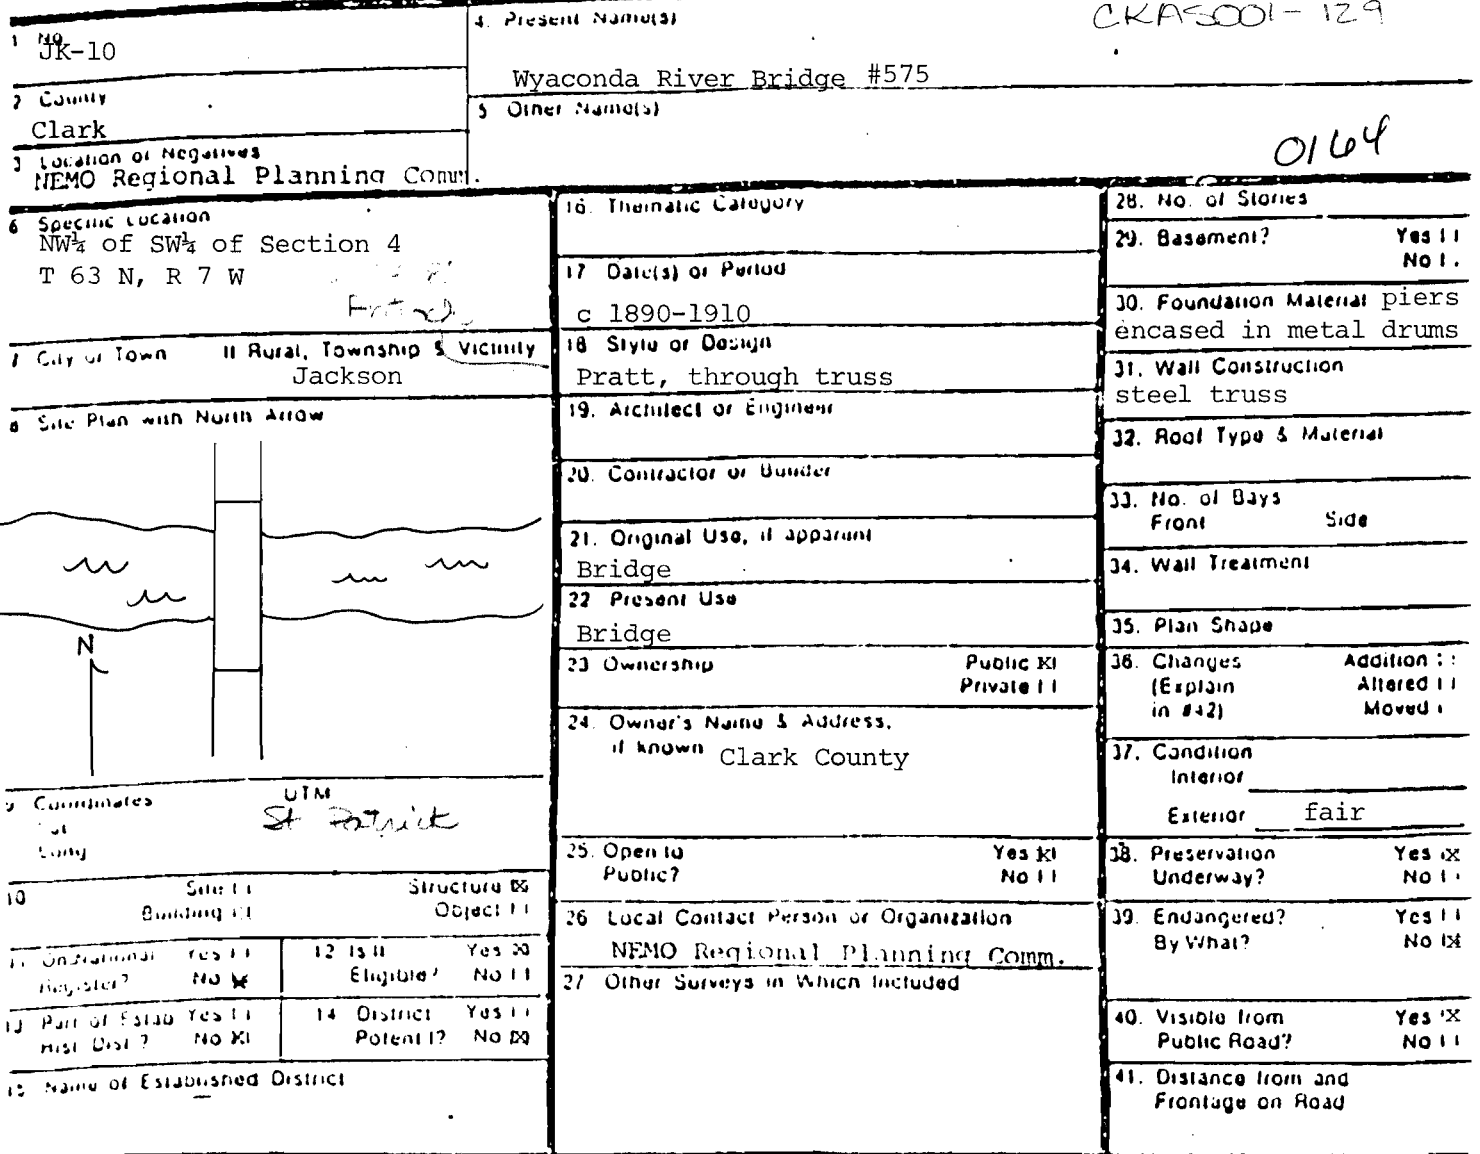 CKAS001-129
1 No.
JK-10
4. Present Name(s)
Wyaconda River Bridge #575
2 County
Clark
5 Other Name(s)
0164
3 Location of Negatives
NEMO Regional Planning Comm.
6 Specific Location
NW¼ of SW¼ of Section 4
T 63 N, R 7 W
7 City or Town If Rural, Township & Vicinity
Jackson
8 Site Plan with North Arrow
N
9 Coordinates UTM
Lat
Long
St Patrick
10 Site [ ] Structure [X]
Building [ ] Object [ ]
11 On National Register? Yes [ ] No [X]
12 Is it Eligible? Yes [X] No [ ]
13 Part of Estab Hist Dist? Yes [ ] No [X]
14 District Potent'l? Yes [ ] No [X]
15 Name of Established District
16. Thematic Category
17 Date(s) or Period
c 1890-1910
18 Style or Design
Pratt, through truss
19. Architect or Engineer
20. Contractor or Builder
21. Original Use, if apparent
Bridge
22 Present Use
Bridge
23 Ownership Public [X]
Private [ ]
24. Owner's Name & Address,
if known Clark County
25. Open to Yes [X]
Public? No [ ]
26 Local Contact Person or Organization
NEMO Regional Planning Comm.
27 Other Surveys in Which Included
28. No. of Stories
29. Basement? Yes [ ]
No [ ]
30. Foundation Material piers
encased in metal drums
31. Wall Construction
steel truss
32. Roof Type & Material
33. No. of Bays
Front Side
34. Wall Treatment
35. Plan Shape
36. Changes Addition [ ]
(Explain Altered [ ]
in #42) Moved [ ]
37. Condition
Interior
Exterior fair
38. Preservation Yes [X]
Underway? No [ ]
39. Endangered? Yes [ ]
By What? No [X]
40. Visible from Yes [X]
Public Road? No [ ]
41. Distance from and
Frontage on Road